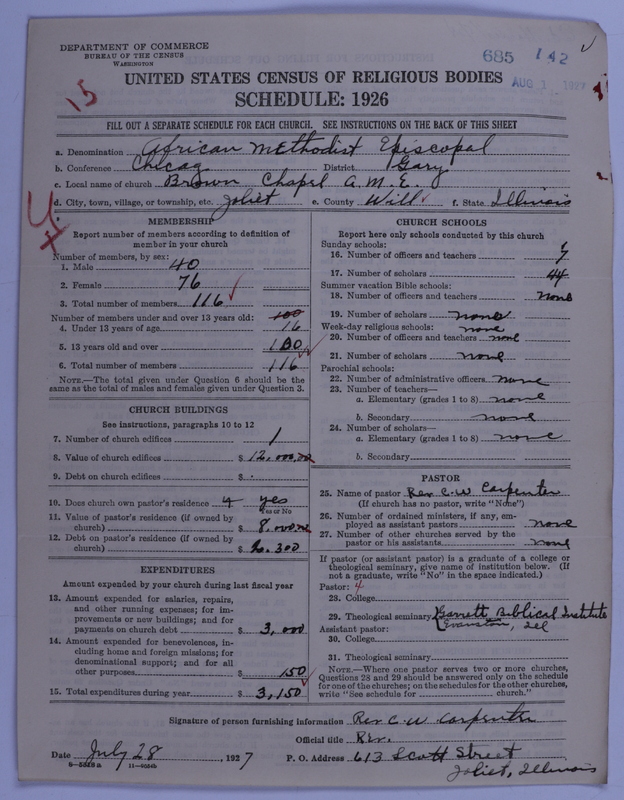 DEPARTMENT OF COMMERCE
BUREAU OF THE CENSUS
WASHINGTON
685 142
AUG 1 1927
15
UNITED STATES CENSUS OF RELIGIOUS BODIES
SCHEDULE: 1926
FILL OUT A SEPARATE SCHEDULE FOR EACH CHURCH. SEE INSTRUCTIONS ON THE BACK OF THIS SHEET
a. Denomination African Methodist Episcopal
b. Conference Chicag District Gary
c. Local name of church Brown Chapel A.M.E.
d. City, town, village, or township, etc. Joliet e. County Will f. State Illinois
MEMBERSHIP
Report number of members according to definition of
member in your church
Number of members, by sex:
1. Male 40
2. Female 76
3. Total number of members 116
Number of members under and over 13 years old: 100
4. Under 13 years of age 16
5. 13 years old and over 100
6. Total number of members 116
NOTE.—The total given under Question 6 should be the
same as the total of males and females given under Question 3.
CHURCH BUILDINGS
See instructions, paragraphs 10 to 12
7. Number of church edifices 1
8. Value of church edifices $ 12,000.00
9. Debt on church edifices $
10. Does church own pastor's residence yes
Yes or No
11. Value of pastor's residence (if owned by
church) $ 8,000.00
12. Debt on pastor's residence (if owned by
church) $ 2,300
EXPENDITURES
Amount expended by your church during last fiscal year
13. Amount expended for salaries, repairs,
and other running expenses; for im-
provements or new buildings; and for
payments on church debt $ 3,000
14. Amount expended for benevolences, in-
cluding home and foreign missions; for
denominational support; and for all
other purposes $ 150
15. Total expenditures during year $ 3,150
CHURCH SCHOOLS
Report here only schools conducted by this church
Sunday schools:
16. Number of officers and teachers 7
17. Number of scholars 44
Summer vacation Bible schools:
18. Number of officers and teachers none
19. Number of scholars none
Week-day religious schools: none
20. Number of officers and teachers none
21. Number of scholars none
Parochial schools:
22. Number of administrative officers none
23. Number of teachers—
a. Elementary (grades 1 to 8) none
b. Secondary none
24. Number of scholars—
a. Elementary (grades 1 to 8) none
b. Secondary
PASTOR
25. Name of pastor Rev C.W Carpenter
(If church has no pastor, write "None")
26. Number of ordained ministers, if any, em-
ployed as assistant pastors none
27. Number of other churches served by the
pastor or his assistants none
If pastor (or assistant pastor) is a graduate of a college or
theological seminary, give name of institution below. (If
not a graduate, write "No" in the space indicated.)
Pastor: 4
28. College
29. Theological seminary Garrett Biblical Institute
Assistant pastor: Evanston, Ill
30. College
31. Theological seminary
NOTE.—Where one pastor serves two or more churches,
Questions 28 and 29 should be answered only on the schedule
for one of the churches; on the schedules for the other churches,
write "See schedule for church."
Signature of person furnishing information Rev C W Carpenter
Official title Rev.
Date July 28, 1927 P. O. Address 613 Scott Street
Joliet, Illinois